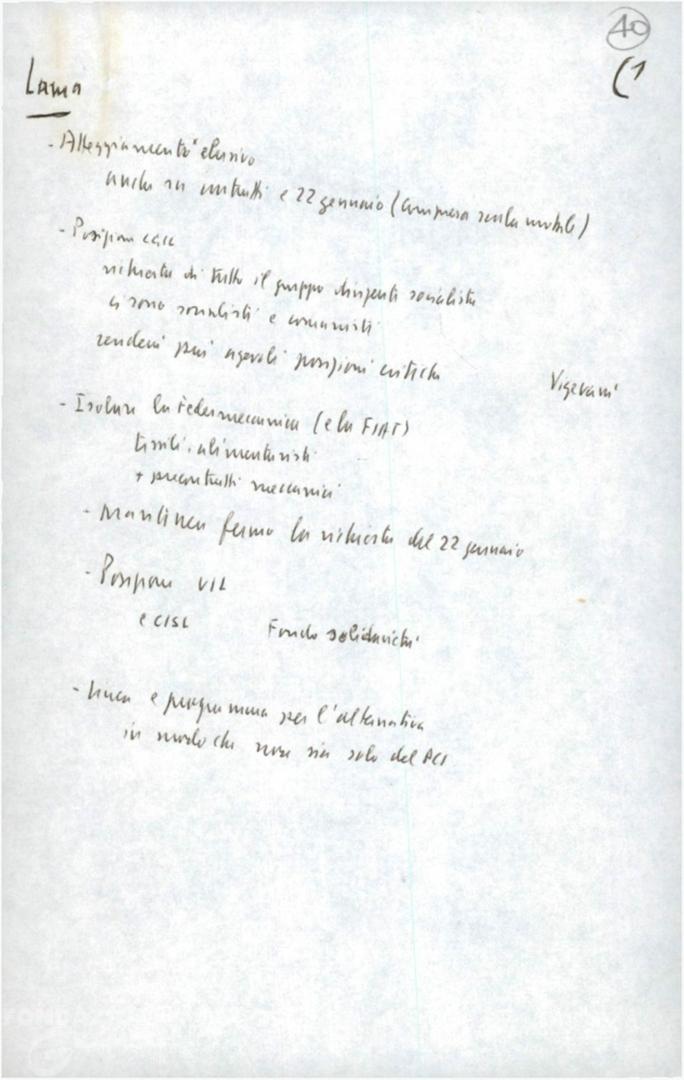 40
(1
Lama
- Atteggiamento elusivo
anche su contratti e 22 gennaio (compresa scala mobile)
- Posizione CGIL
richiesta di tutto il gruppo dirigenti socialista
ci sono socialisti e comunisti
rendere più agevoli posizioni critiche
Vigevani
- Isolare la Federmeccanica (e la FIAT)
tessili, alimentaristi
+ precontratti meccanici
- Mantenere fermo la richiesta del 22 gennaio
- Posizione UIL
e CISL Fondo solidarietà
- Linea e programma per l'alternativa
in modo che non sia solo del PCI